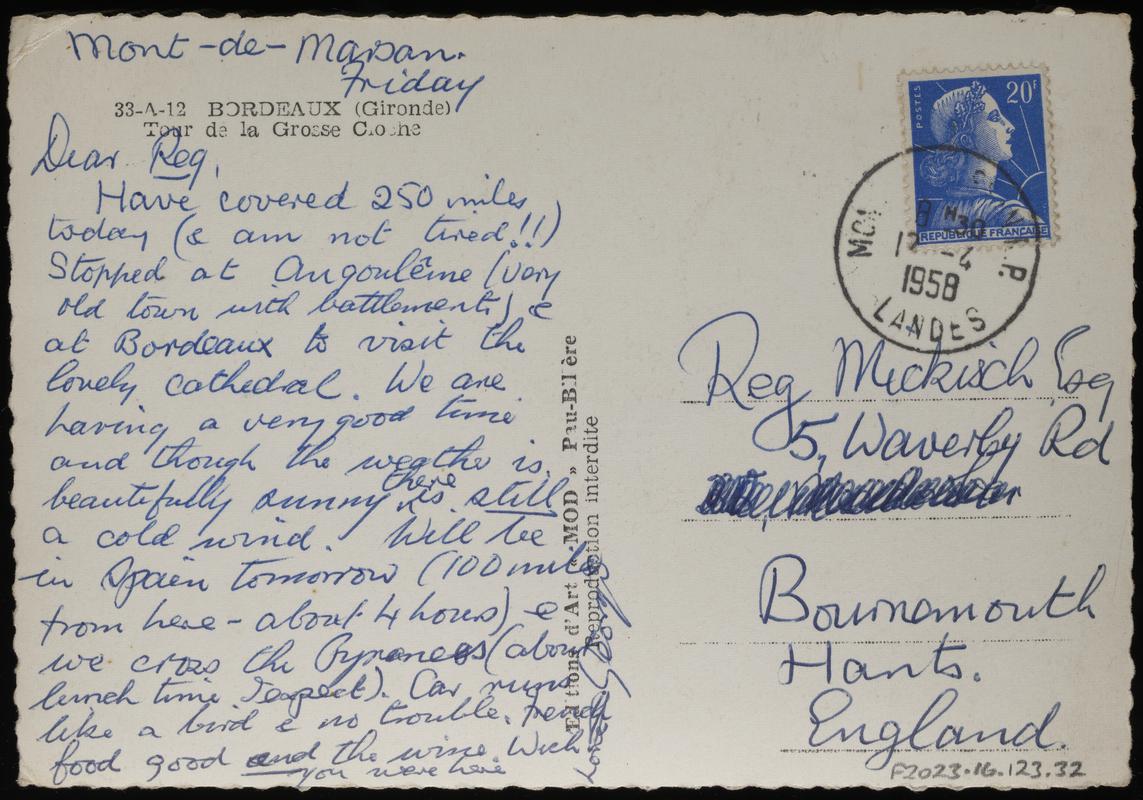 Mont-de-Marsan.
Friday
33-A-12 BORDEAUX (Gironde)
Tour de la Grosse Cloche
Dear Reg,
Have covered 250 miles
today (& am not tired!!)
Stopped at Angoulême (very
old town with battlements) &
at Bordeaux to visit the
lovely cathedral. We are
having a very good time
and though the weather is
beautifully sunny there is still
a cold wind. Will be
in Spain tomorrow (100 miles
from here - about 4 hours) &
we cross the Pyranees (about
lunch time I expect). Car runs
like a bird & no trouble. French
food good and the wine. Wish
you were here
Love George
Editions d'Art « MOD » Pau-Billère
Reproduction interdite
POSTES
20F
REPUBLIQUE FRANÇAISE
8H30
12 -4
1958
LANDES
Reg Mickisch Esq
5, Waverley Rd
Bournemouth
Hants.
England.
F2023.16.123.32